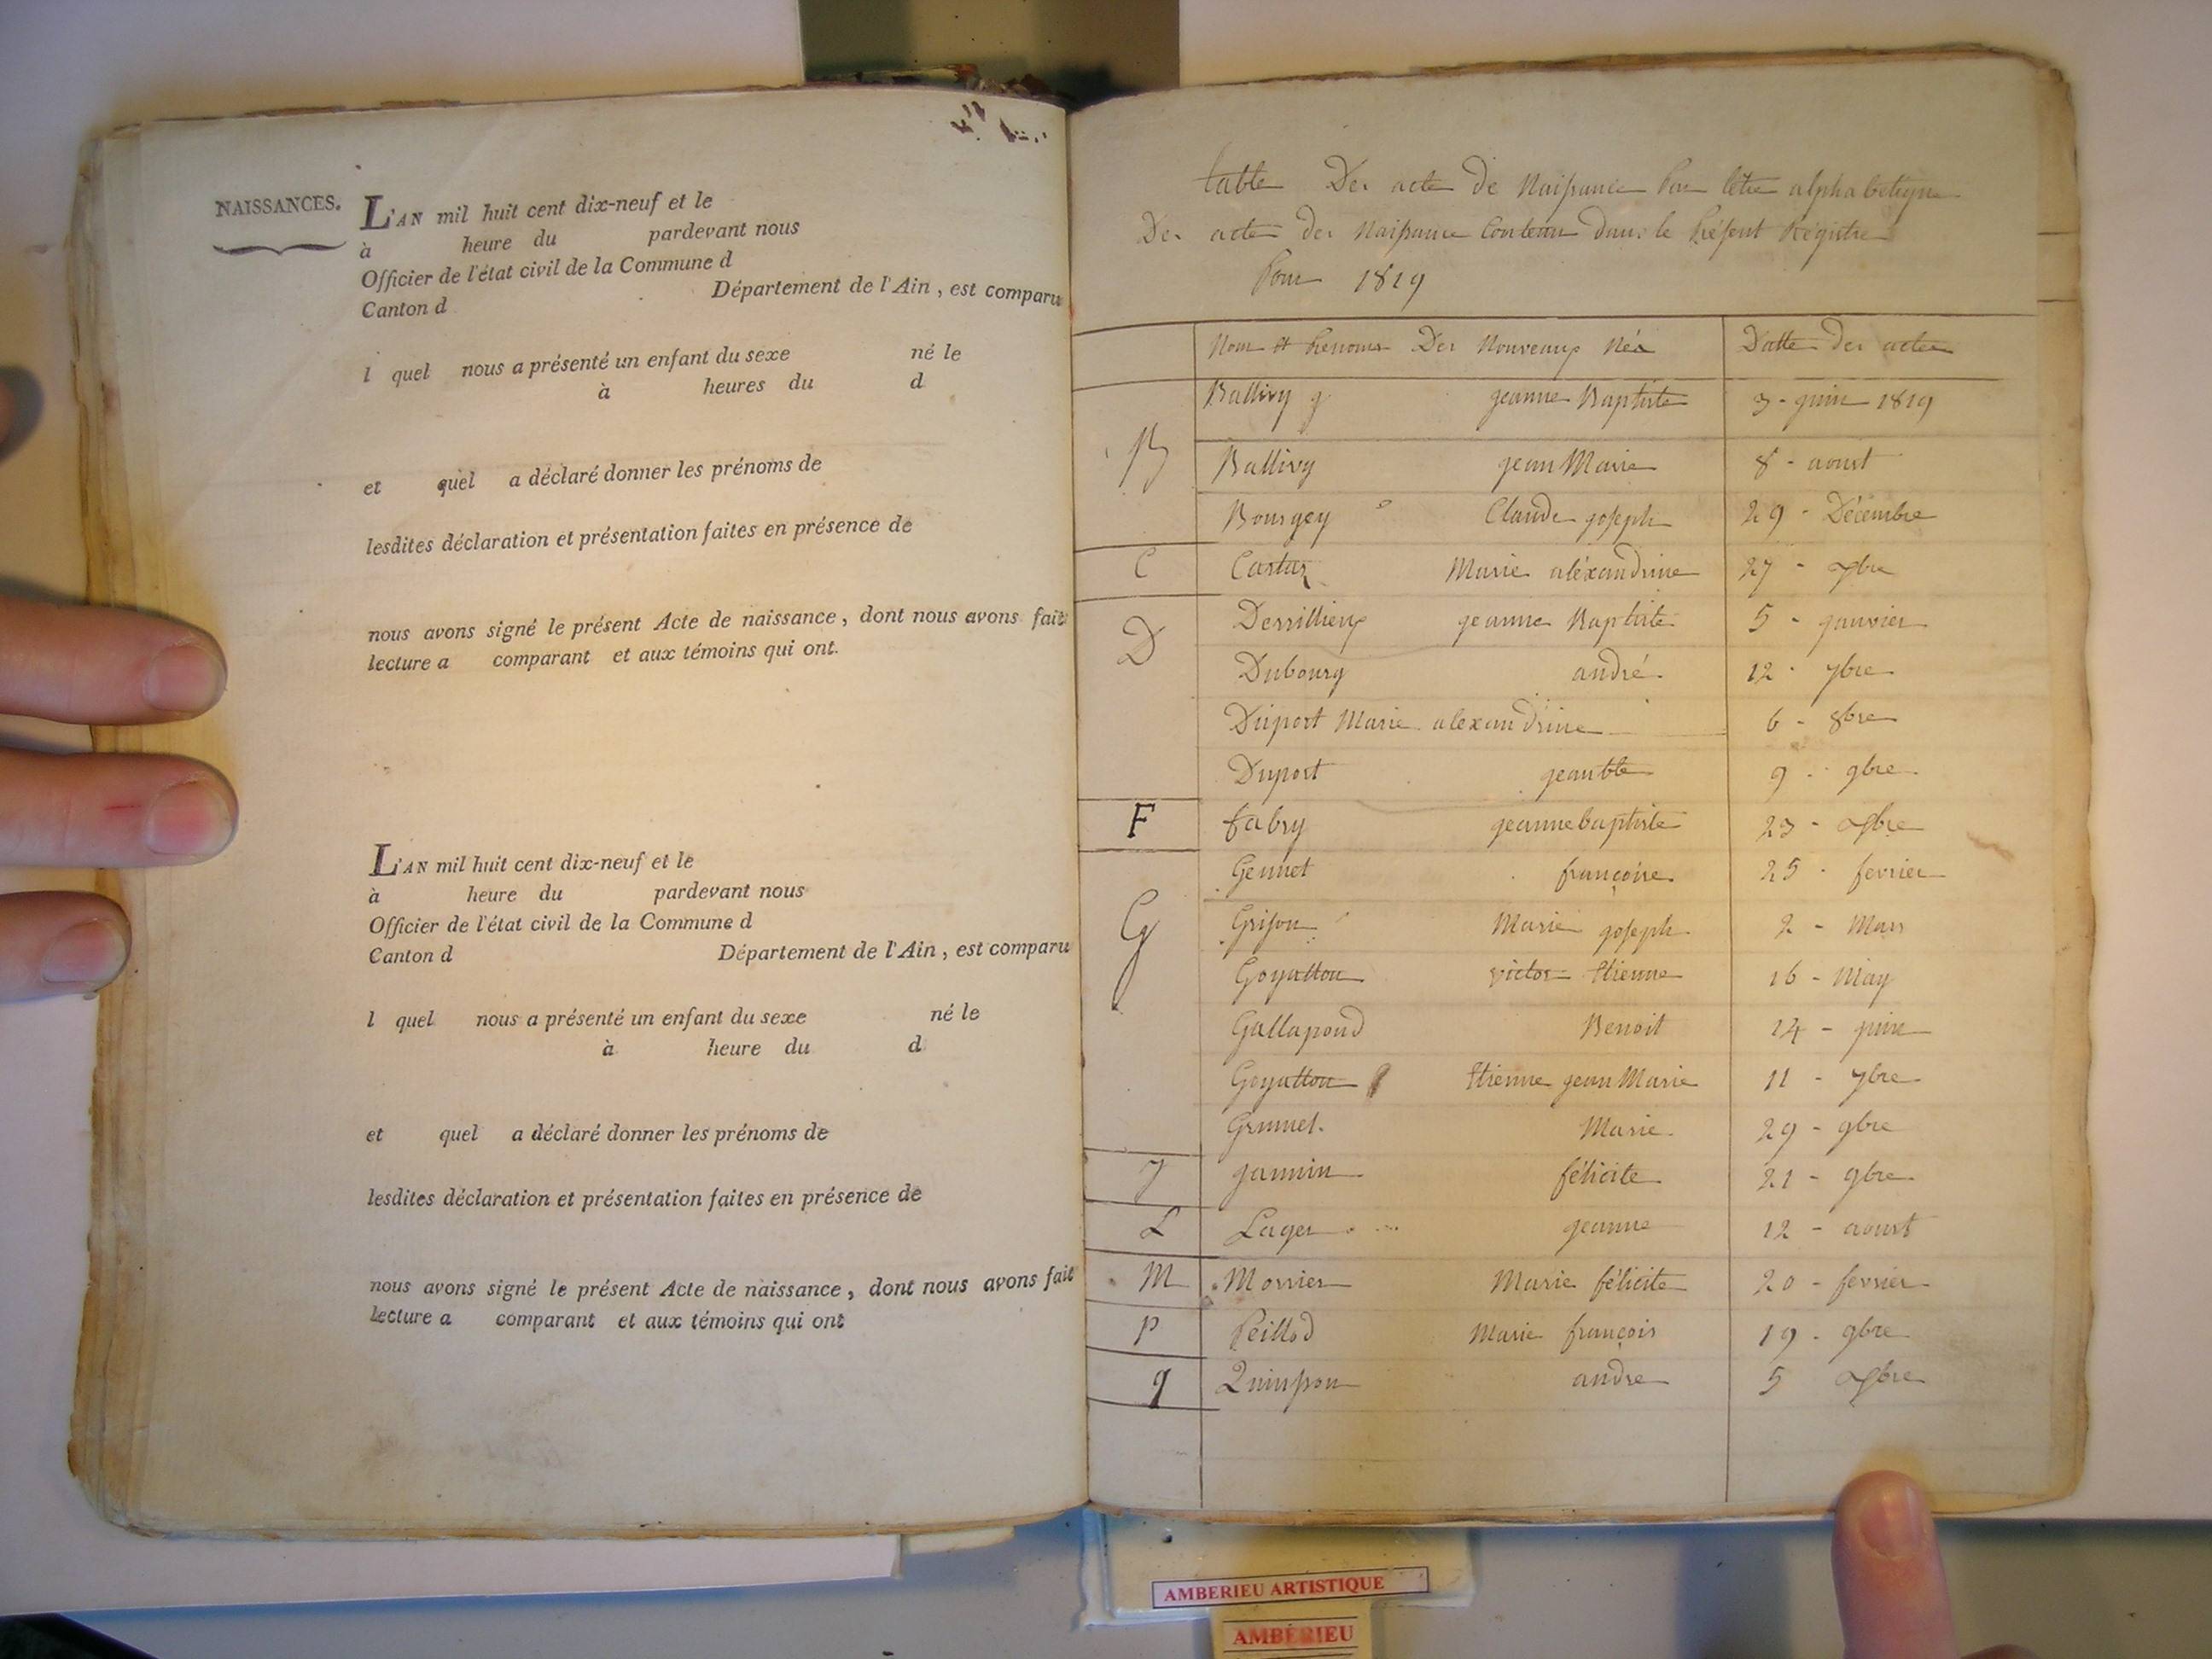 NAISSANCES.
L'AN mil huit cent dix-neuf et le
à heure du pardevant nous
Officier de l'état civil de la Commune d
Canton d Département de l'Ain, est comparu
l quel nous a présenté un enfant du sexe né le
à heures du d
et quel a déclaré donner les prénoms de
lesdites déclaration et présentation faites en présence de
nous avons signé le présent Acte de naissance, dont nous avons fait
lecture a comparant et aux témoins qui ont.
L'AN mil huit cent dix-neuf et le
à heure du pardevant nous
Officier de l'état civil de la Commune d
Canton d Département de l'Ain, est comparu
l quel nous a présenté un enfant du sexe né le
à heure du d
et quel a déclaré donner les prénoms de
lesdites déclaration et présentation faites en présence de
nous avons signé le présent Acte de naissance, dont nous avons fait
lecture a comparant et aux témoins qui ont
table Des acte de Naissance Par lètre alphabétique
Des actes des Naissance Contenu dans le Présent Régistre
Pour 1819
Nom et Prénoms Des Nouveaux Nés Datte des actes
B
Ballivy jeanne Baptiste 3 - juin 1819
Ballivy jean Marie 8 - aoust
Bourgey Claude joseph 29 - Décembre
C Castaz Marie aléxandrine 27 - xbre
D
Derrillieux jeanne Baptiste 5 - janvier
Dubourg andré 12 - 7bre
Duport Marie alexandrine 6 - 8bre
Duport jean bte 9 - 9bre
F fabry jeanne baptiste 23 - xbre
G
Gennet françoise 25 - fevrier
Grison Marie joseph 2 - Mars
Goyatton victor Etienne 16 - May
Gallapond Benoit 14 - juin
Goyatton Etienne jean Marie 11 - 7bre
Grumet Marie 29 - 9bre
J jannin félicite 21 - 9bre
L Lager jeanne 12 - aoust
M Morrier Marie félicite 20 - fevrier
P Peillod Marie françois 19 - 9bre
q Quinson andre 5 xbre
AMBERIEU ARTISTIQUE
AMBÉRIEU